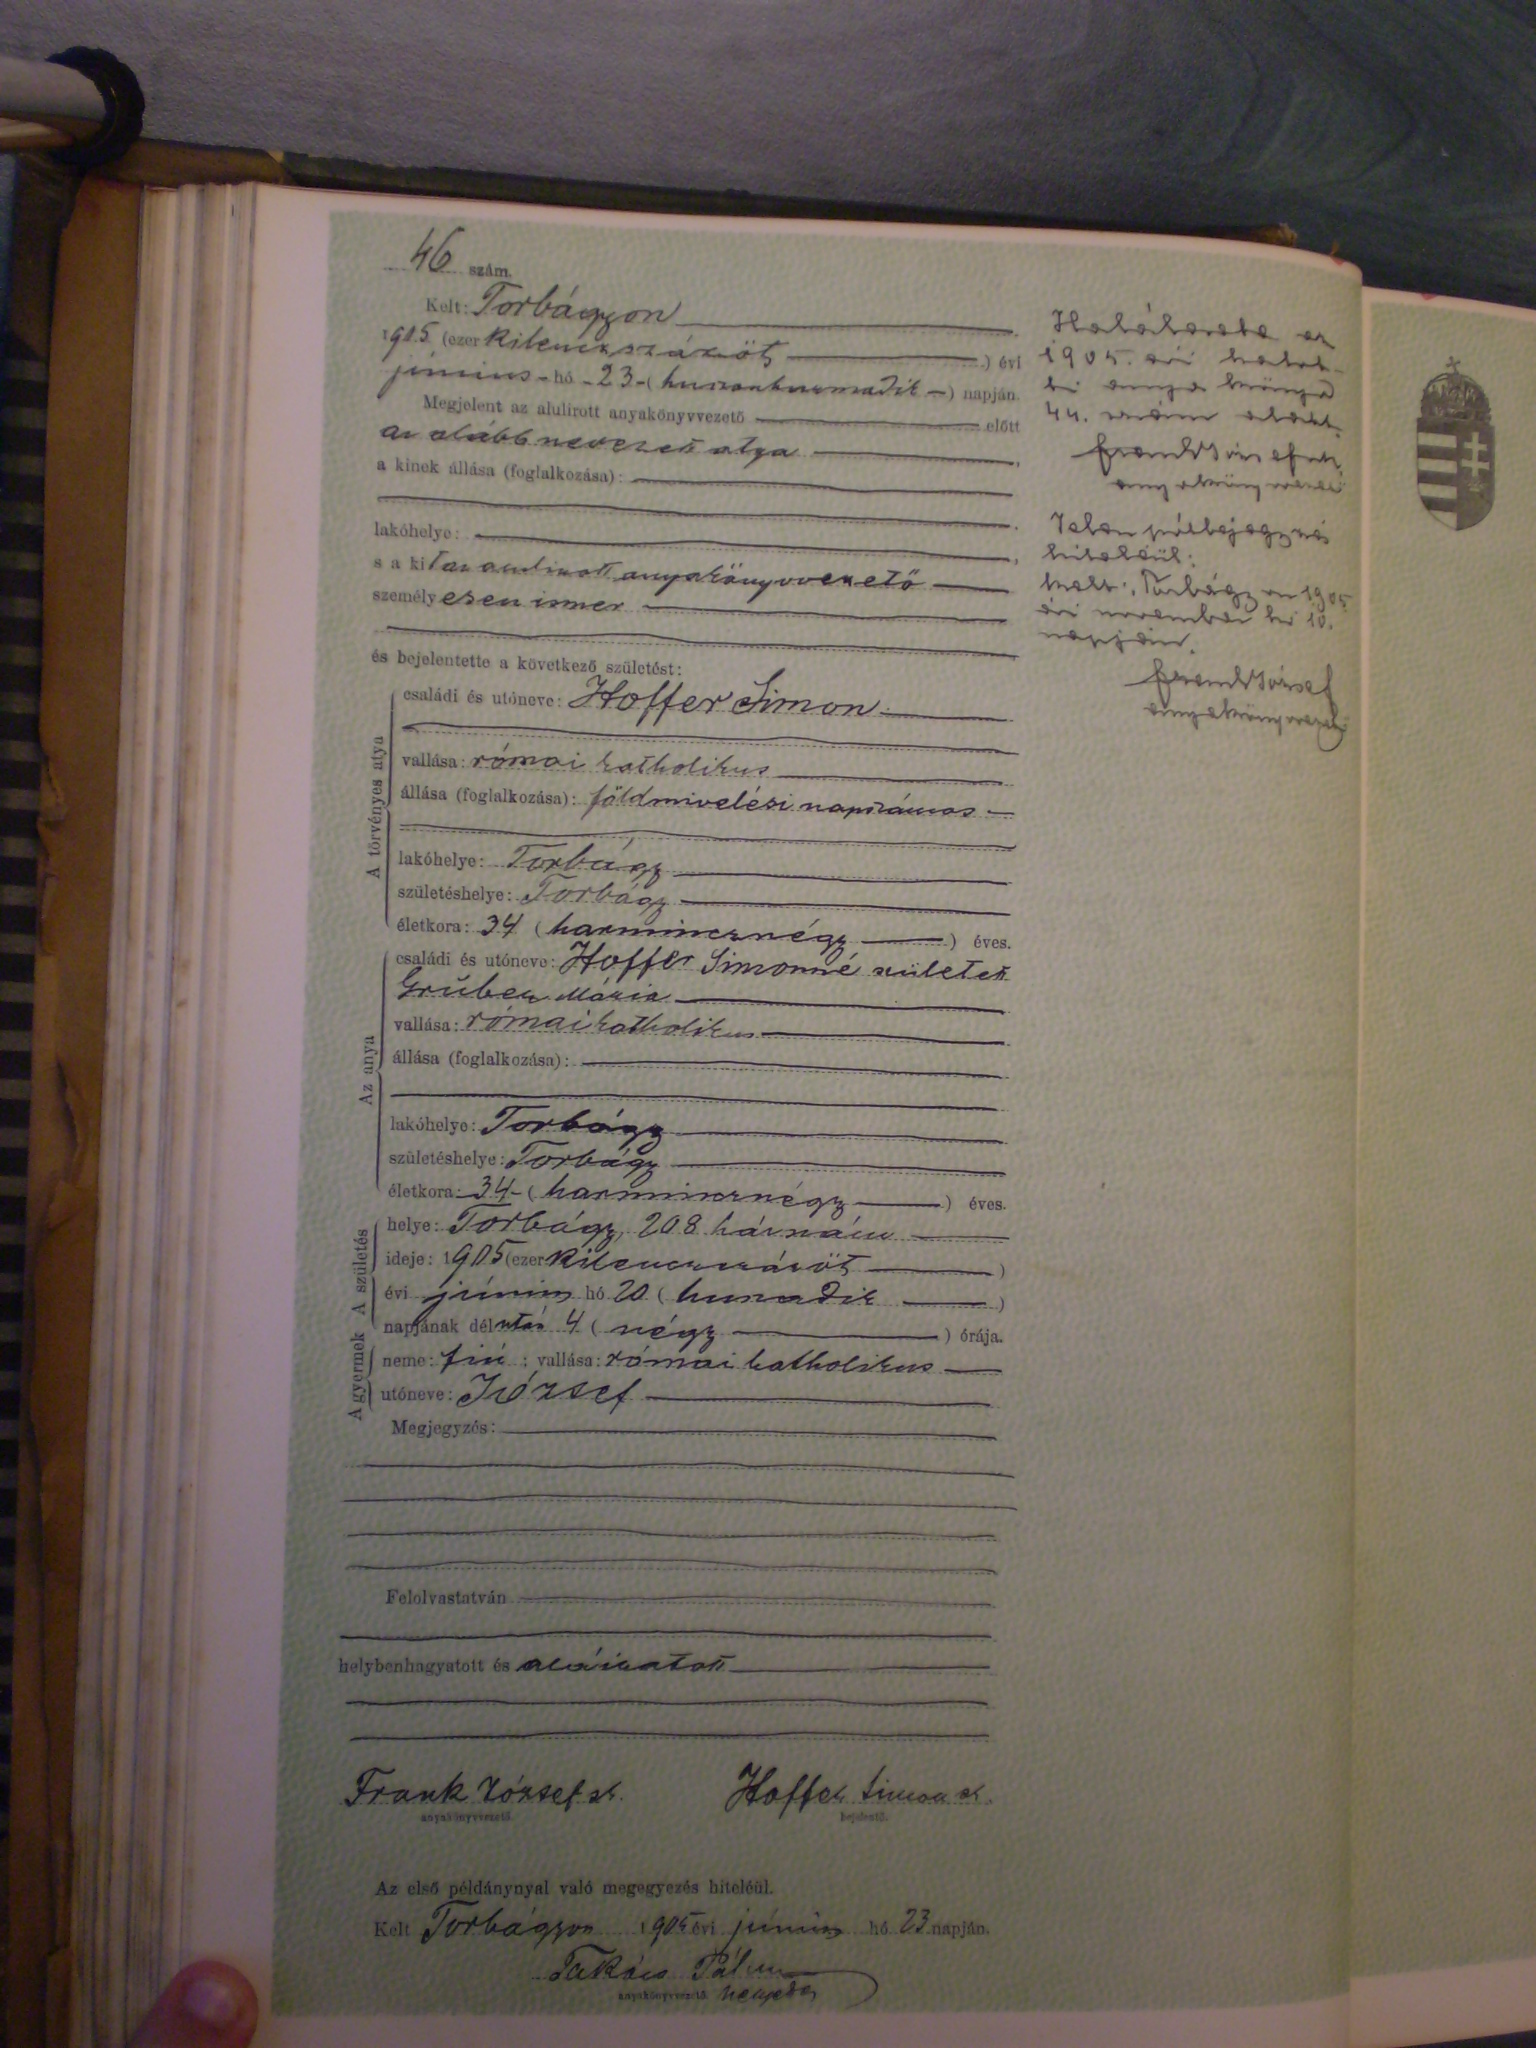 46 szám.
Kelt: Torbágyon
1905 (ezer kilenczszázöt) évi
június hó 23 (huszonharmadik) napján.
Megjelent az alulirott anyakönyvvezető előtt
az alább nevezett atya,
a kinek állása (foglalkozása):
lakóhelye:
s a kit az alulirott anyakönyvvezető
személyesen ismer
és bejelentette a következő születést:
A törvényes atya
családi és utóneve: Hoffer Simon
vallása: római katholikus
állása (foglalkozása): földmivelési napszámos
lakóhelye: Torbágy
születéshelye: Torbágy
életkora: 34 (harmincznégy) éves.
Az anya
családi és utóneve: Hoffer Simonné született
Gruber Mária
vallása: római katholikus
állása (foglalkozása):
lakóhelye: Torbágy
születéshelye: Torbágy
életkora: 34 (harmincznégy) éves.
A születés
helye: Torbágy, 208 házszám
ideje: 1905 (ezer kilenczszázöt)
évi június hó 20 (huszadik)
napjának délután 4 (négy) órája.
A gyermek
neme: fiú; vallása: római katholikus
utóneve: József
Megjegyzés:
Felolvastatván
helybenhagyatott és aláiratott
Frank József sk. Hoffer Simon sk.
anyakönyvvezető. bejelentő.
Az első példánynyal való megegyezés hiteléül.
Kelt Torbágyon 1905 évi június hó 23 napján.
Takács Pál
anyakönyvvezető helyettes
Halálesete az
1905. évi halot-
ti anyakönyvn
44. szám alatt.
Frank József sk.
anyakönyvvezető
Ezen
hiteléül:
Kelt: Torbágyon 1905
évi november hó 10.
napján.
Frank József
anyakönyvvezető